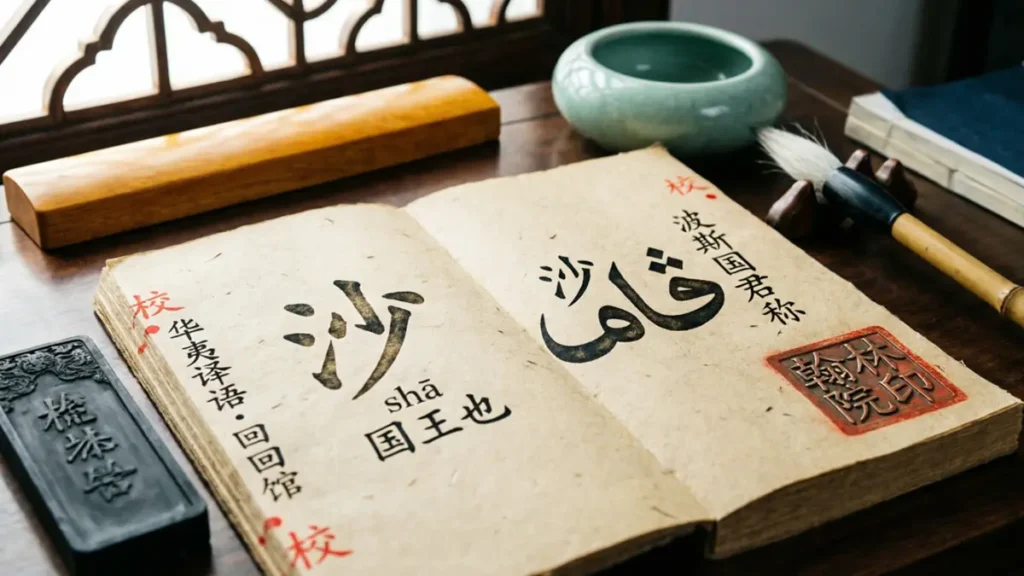 校
华夷译语·回回馆
沙
shā
国王也
校
校
波斯国君称
沙
翰林
院印